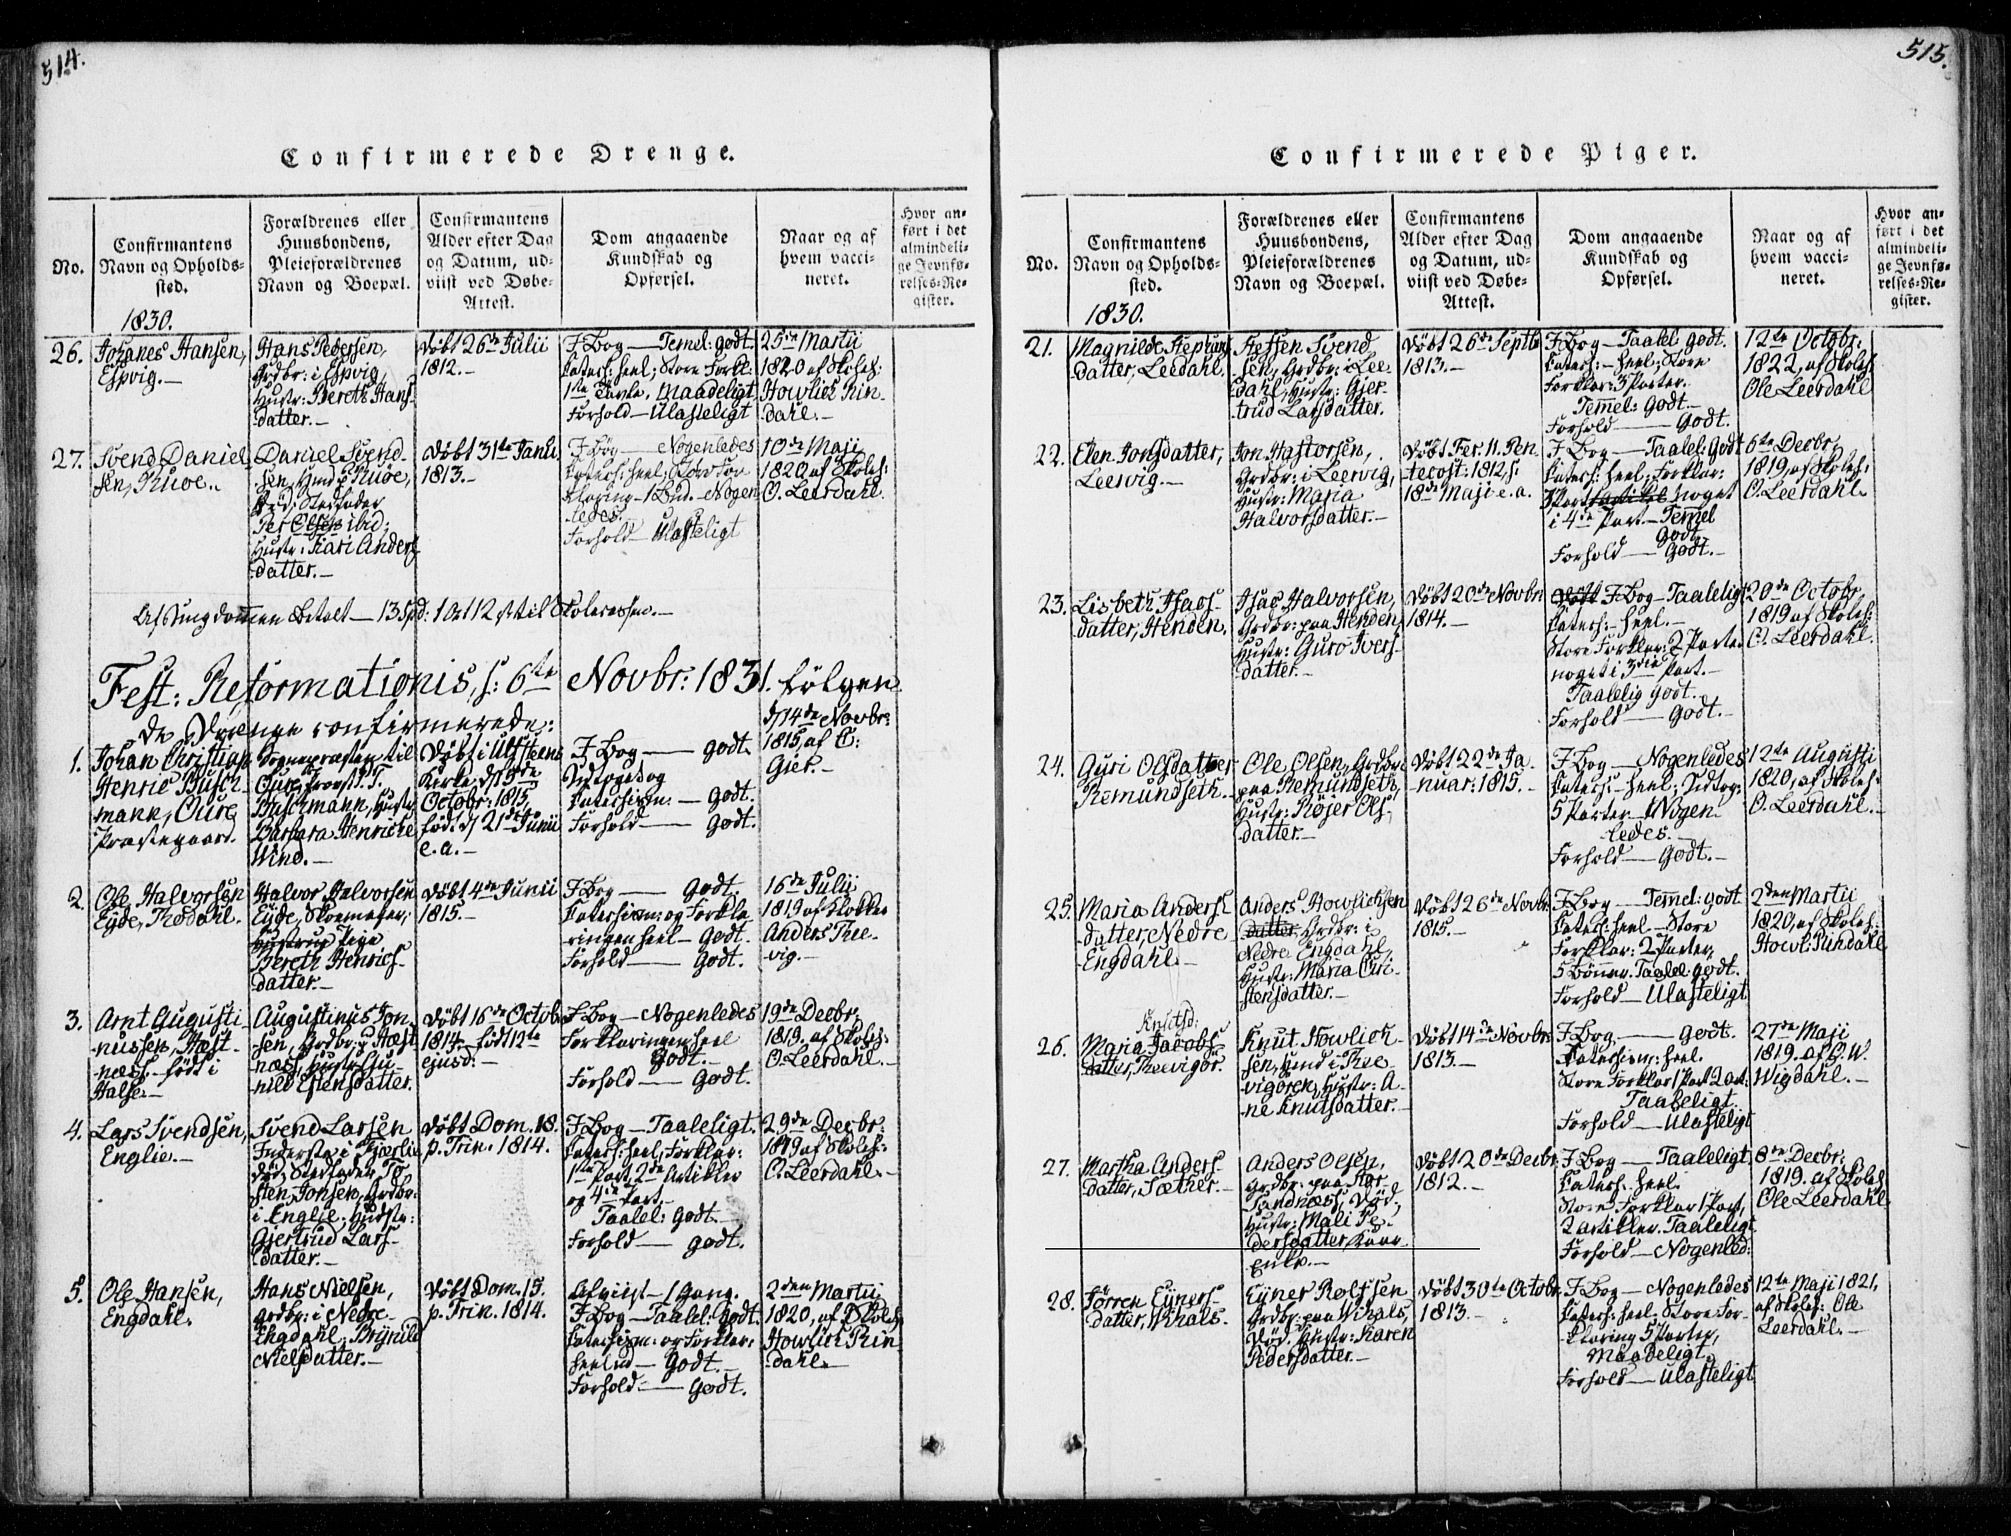 514.
Confirmerede Drenge.
No.
Confirmantens
Navn og Opholds-
sted.
1830.
Forældrenes eller
Huusbondens,
Pleieforældrenes
Navn og Boepæl.
Confirmantens
Alder efter Dag
og Datum, ud-
viist ved Døbe-
Attest.
Dom angaaende
Kundskab og
Opførsel.
Naar og af
hvem vacci-
neret.
Hvor an-
ført i det
almindeli-
ge Jevnfø-
relses-Re-
gister.
26.
Johanes Hansen,
Espvig.—
Hans Pedersen,
Grdbr: i Espvig,
Hustr: Bereth Hans-
datter.—
Døbt 26de Julii
1812.—
I Bog — Temel: godt.
Catech: heel; Store Forkl:
1ste Tavle, Maadeligt
Forhold — Ulasteligt
25de Martii
1820 af Skoleh:
Howlich Rin-
dahl.—
27.
Svend Daniel
sen, Kuøe.
Daniel Svend
sen, Huusmd p Kuøe,
død, Stedfader
Per Olsen ibid:
Hustr: Kari Anders
datter.—
Døbt 31te Janu.
1813.—
I Bog — Nogenledes
Catech: heel, Store For
klaring — Nogen
ledes.
Forhold — Ulasteligt
10de Maji
1820 af Skoleh:
O. Leerdahl.
Af Ungdommen betalt — 13 Spd: 1 ort 12 s til Skolecassen.—
Fest: Reformationis, s: 6te Novbr: 1831. følgen
de Drenge confirmerede:
1.
Johan Christian
Henric Busch-
mann, Oure
Præstegaard.
Sognepræsten til
Oure, Provst J. T.
Buschmann, Hustr
Barbara Henricke
Wind.—
Døbt i Ulfsteens
Kirke d/ 8de
Octobr: 1815,
født d/ 21de Junii
e. a.—
I Bog — godt.
Udtoget og
Catechism. — Godt.
Forhold — Godt.
d/ 14de Novbr:
1815, af C:
Gier.—
2.
Ole Halvorsen
Eyde, Thodahl.
Halvor Halvorsen
Eyde, Skoemager,
Hustrue Pige
Bereth Henrics-
datter.—
Døbt 4de Junii
1815.—
I Bog — Godt.
Catechism: og Forkla
ringen heel — Godt.
Forhold — Godt.
16de Julii
1819 af Klokker
Anders Thee-
vig.—
3.
Arnt Augusti-
nussen, Hæst-
næss. født i
Halse.—
Augustinus Jon-
sen, Grdbr: p Hæst
næss, Hustr: Gu-
nild Estensdatter.
Døbt 16de Octobr
1814. født 12te
ejusd:—
I Bog — Nogenledes
Forklaringen heel
Godt.
Forhold — Godt.
19de Decbr:
1819. af Skoleh:
O. Leerdahl.
4.
Lars Svendsen,
Englie.—
Svend Larsen
Inderste i Fjærlie
død, Stedfader To
sten Jonsen, Grdbr:
i Englie, Hustr:
Gjertrud Lars-
datter.—
Døbt Dom. 18.
p. Trin. 1814.
I Bog — Taaleligt.
Catech: heel, Forklar:
1ste Part, 2de Artikler
og 4de Part,
Taalel: Godt.—
Forhold — godt.
29de Decbr:
1819 af Skoleh:
O. Leerdahl.—
5.
Ole Hansen,
Engdahl.
Hans Nielsen,
Grdbr: i Nedre
Engdahl, Brynild
Nielsdatter.—
Døbt Dom. 15.
p. Trin. 1814.
Afviist — 1 Gang.
I Bog — Taalel: Godt.
Catechism: og Forklar:
heel — Godt.—
Forhold — Godt.
2den Martii
1820, af Skoleh
Howlich Rin-
dahl.
515.
Confirmerede Piger.
No.
Confirmantens
Navn og Opholds-
sted.
1830.
Forældrenes eller
Huusbondens,
Pleieforældrenes
Navn og Boepæl.
Confirmantens
Alder efter Dag
og Datum, ud-
viist ved Døbe-
Attest.
Dom angaaende
Kundskab og
Opførsel.
Naar og af
hvem vacci-
neret.
Hvor an-
ført i det
almindeli-
ge Jevnfø-
relses-Re-
gister.
21.
Magnilde Stephens
datter, Leedahl.
Steffen Svend
sen, Grdbr: i Lee-
dahl, Hustr: Gjer-
trud Larsdatter.
Døbt 26de Septbr
1813.—
I Bog — Taalel: godt.
Catech: — heel; Store
Forklar: 3 Parter.
Temmel: Godt.—
Forhold — Godt.
12te Octobr:
1822, af Skoleh:
Ole Leerdahl
22.
Elen Jonsdatter,
Leervig.—
Jon Hastorsen,
Grdbr: i Leervig,
Hustr: Maria
Halvorsdatter.—
Døbt Fer. II. Pen
tecost: 1812, s:
18de Maji e. a.
I Bog — Taalel: godt
Catech: heel, Forklar:
3 Part noget
i 4de Part. — Temmel
Godt.
Forhold — Godt.—
6te Decbr
1819, af Skoleh:
O. Leerdahl.
23.
Lisbeth Isacs-
datter, Henden.
Isac Halvorsen,
Grdbr: paa Henden,
Hustr: Guro Ivers-
datter.—
Døbt 20de Novbr
1814.—
I Bog — Taaleligt
Catech: — heel.—
Store Forklar: 2 Parter
noget i 3die Part.—
Taalelig godt.
Forhold — Godt.—
20de Octobr,
1819 af Skoleh:
O. Leerdahl.
24.
Guri Olsdatter
Remundseth.—
Ole Olsen, Grdbr:
paa Remundseth,
Hustr: Røjer Ols-
datter.—
Døbt 22de Ja
nuar: 1815.—
I Bog — Nogenledes
Catech: — heel; Udtog:
5 Parter — Nogen
ledes.—
Forhold — Godt.—
12te Augusti
1820, af Skoleh:
O. Leerdahl.—
25.
Maria Anders-
datter, Nedre
Engdahl.—
Anders Howlichsen
datter, Grdbr: i
Nedre Engdahl,
Hustr: Maria Chri-
stensdatter.—
Døbt 26de Novbr
1815.—
I Bog — Temel: godt
Catech: heel — Store
Forklar: 2 Parter,
5 Bønner. Taalel: godt.
Forhold — Ulasteligt
2den Martii
1820, af Skoleh:
Howl: Rindahl
26.
Knutsd:
Maria Jacobs-
datter, Theevigør.
Knut Howlich
sen, Huusmd i Thee
vigøren, Hustr: A-
ne Knutsdatter.—
Døbt 14de Novbr
1813.—
I Bog — Godt.
Catechism: heel.
Store Forklar 1 Part 2 Art:
Taaleligt.
Forhold — Ulasteligt
27de Maji
1819. af O. W.
Wigdahl.—
27.
Martha Anders-
datter, Sæther.—
Anders Olsen,
Grdbr: paa Aar-
sandnæss, Død,
Hustr: Mali Pe-
dersdatter,
Enke.—
Døbt 20de Decbr:
1812.—
I Bog — Taaleligt
Catech: heel.
Store Forklar 1 Part,
2 Artikler. Taaleligt
Forhold — Nogenled:
8de Decbr:
1819. af Skoleh
Ole Leerdahl
28.
Sørren Ejners-
datter, Wihals.
Ejner Rolfsen
Grdbr: paa Wihals,
død. Hustr: Karen
Pedersdatter.—
Døbt 30te Octobr
1813.—
I Bog — Nogenledes
Catech: heel. Store For-
klaring 5 Parter,
Maadeligt.
Forhold — Ulasteligt
12te Maji 1821,
af Skoleh: Ole
Leerdahl.—